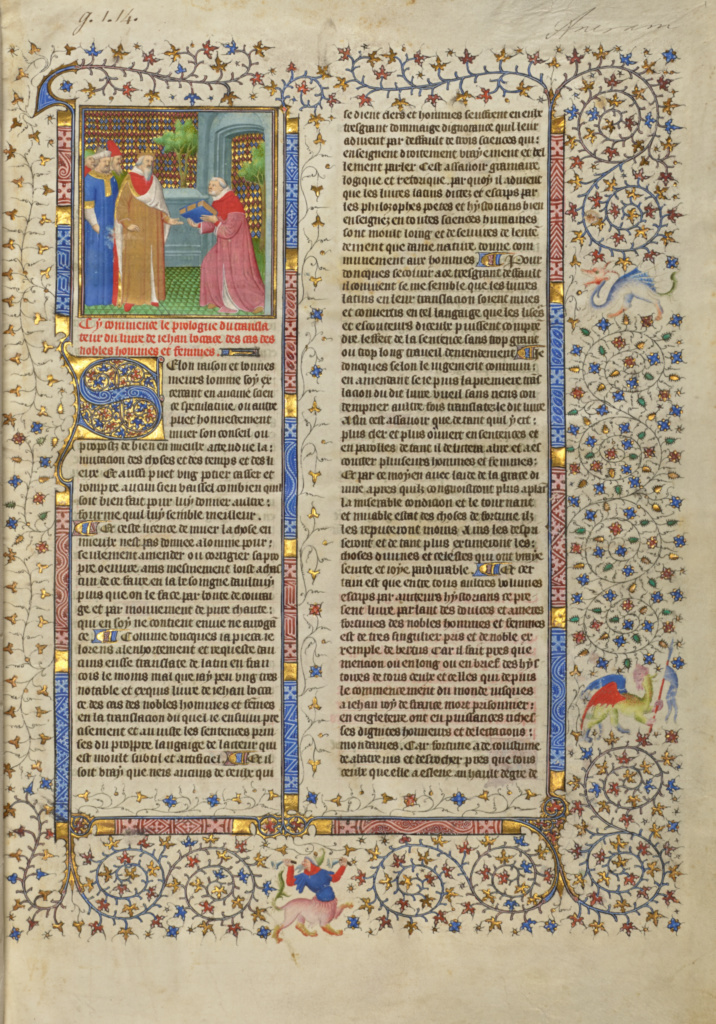 g. 1. 14.
Cy commence le prologue du transla
teur du livre de iehan bocace des cas des
nobles hommes et femmes.
Selon raison et bonnes
meurs lomme soy ex
cercant en aucune scien
ce speculative, ou aultre
puet honnestement
muer son conseil ou
propost de bien en mieulx attendue la
mutacion des choses et des temps et des li
eux Et aussi puet ung potier casser et
rompre aucun sien vaissel combien quil
soit bien fait pour luy donner aultre
fourme qui luy semble meilleur.
Et ceste licence de muer la chose en
mieulx nest pas donnee a lomme pour
seulement amender ou corrigier sa pro
pre oeuvre ains mesmement loist a chas
cun de ce faire en la besoingne daultruy
puis que on le face par bonte de courai
ge et par mouvement de pure charite
qui en soy ne contient envie ne arrogan
ce Comme doncques ia pieca ie
lorens a lenhortement et requeste dau
cuns eusse translate de latin en fran
cois le moins mal que iay peu ung tres
notable et exquis livre de iehan bocca
ce des cas des nobles hommes et femes
en la translacion du quel ie ensuivi pre
cisement et au iuste les sentences prin
ses du propre langaige de lacteur qui
est moult subtil et artificiel Et il
soit vray que neis aucuns de ceulx qui
se dient clers et hommes seuffrent en eulx
tresgrant dommaige dignorance qui leur
advient par deffault de trois sciences qui
enseignent droitement vrayement et bel
lement parler Cest assavoir gramaire
logique et rethorique par quoy il advient
que les livres latins dictez et escrips par
les philosophes poetes et hystorians bien
enseignez en toutes sciences humaines
sont moult loing et desseurez de lenten
dement que dame nature donne com
munement aux hommes Pour
doncques secourir a ce tresgrant deffault
il convient se me semble que les livres
latins en leur translacion soient muez
et convertis en tel language que les lisens
et escouteurs diceulx puissent compren
dre leffect de la sentence sans trop grant
ou trop long traveil dentendement Je
doncques selon le iugement commun
en amendant se ie puis la premiere trans
lacion du dit livre vueil sans riens con
tempner aultre fois translater le dit livre
a fin cest assavoir que de tant quil yert
plus cler et plus ouvert en sentences et
en parolles de tant il delitera a lire et a es
couter pluseurs hommes et femmes
Et par ce moyen avec laide de la grace di
vine apres quilz congnoistront plus a plain
la miserable condicion et le tournant
et muable estat des choses de fortune ilz
les reputeront moins Ains les despri
seront et de tant plus extimeront les
choses divines et celestes qui ont vraye
seurte et ioye pardurable Et cer
tain est que entre tous aultres volumes
escrips par aucteurs hystorians ce pre
sent livre parlant des doulces et ameres
fortunes des nobles hommes et femmes
est de tres singulier pris et de noble ex
emple de vertus Car il fait pres que
mencion ou en long ou en brief des hys
toires de tous ceulx et celles qui depuis
le commencement du monde iusques
a iehan roy de france mort prisonnier
en engleterre ont en puissances riches
ses dignitez honneurs et delectacions
mondaines Car fortune a de coustume
dabatre ius et destrochier pres que tous
ceulx que elle a esleve au hault degre de